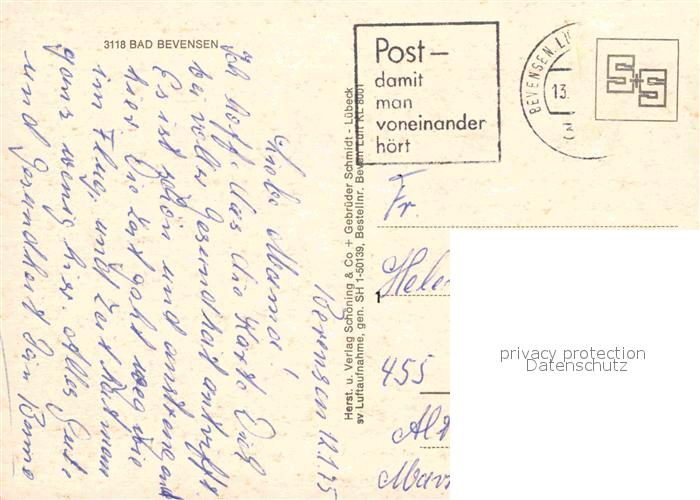 3118 BAD BEVENSEN
Post –
damit
man
voneinander
hört
BEVENSEN
13.
Herst. u. Verlag Schöning & Co + Gebrüder Schmidt - Lübeck
sv Luftaufnahme, gen. SH 1-50139, Bestellnr. Beven Luft KL 8001
Bevensen 12.1.75
Liebe Mama!
Ich hoffe das die Karte Dich
bei voller Gesundheit antrifft.
Es ist schön und anstrengend
hier. Die Zeit geht weg wie
im Flug, und Zeit hat man
ganz wenig hier. Alles Gute
und Gesundheit Dein
Fr.
Hele
455
Al
privacy protection
Datenschutz